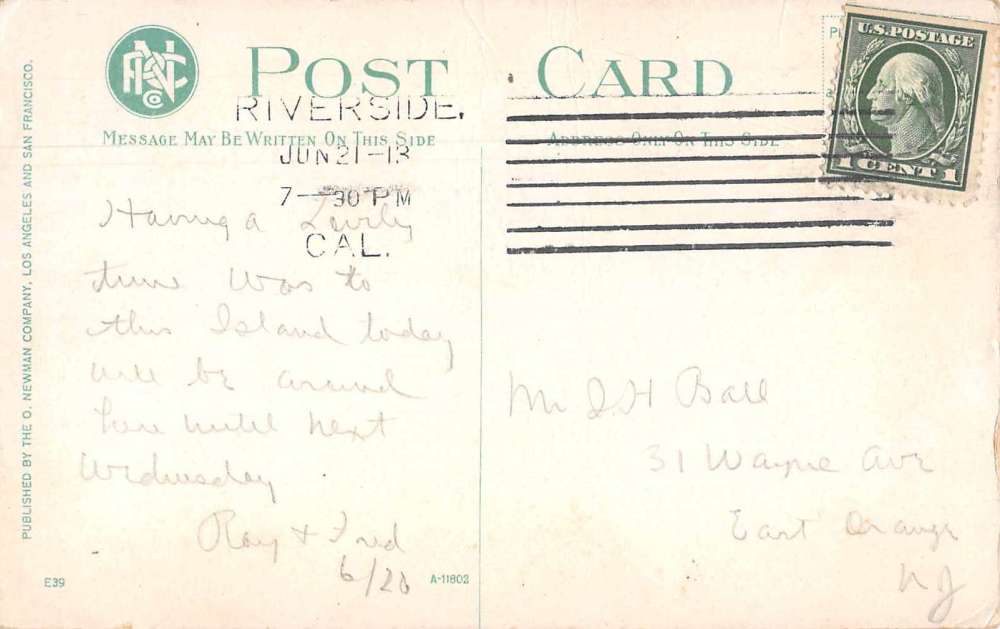 POST CARD
RIVERSIDE,
JUN 21-13
7-30 PM
CAL.
MESSAGE MAY BE WRITTEN ON THIS SIDE
ADDRESS ONLY ON THIS SIDE
U.S. POSTAGE
1 CENT 1
Having a Lovely
time Was to
this Island today
will be around
here until next
Wednesday
Ray + Fred
6/20
Mr I H Ball
31 Wayne Ave
East Orange
NJ
PUBLISHED BY THE O. NEWMAN COMPANY, LOS ANGELES AND SAN FRANCISCO.
E39
A-11802